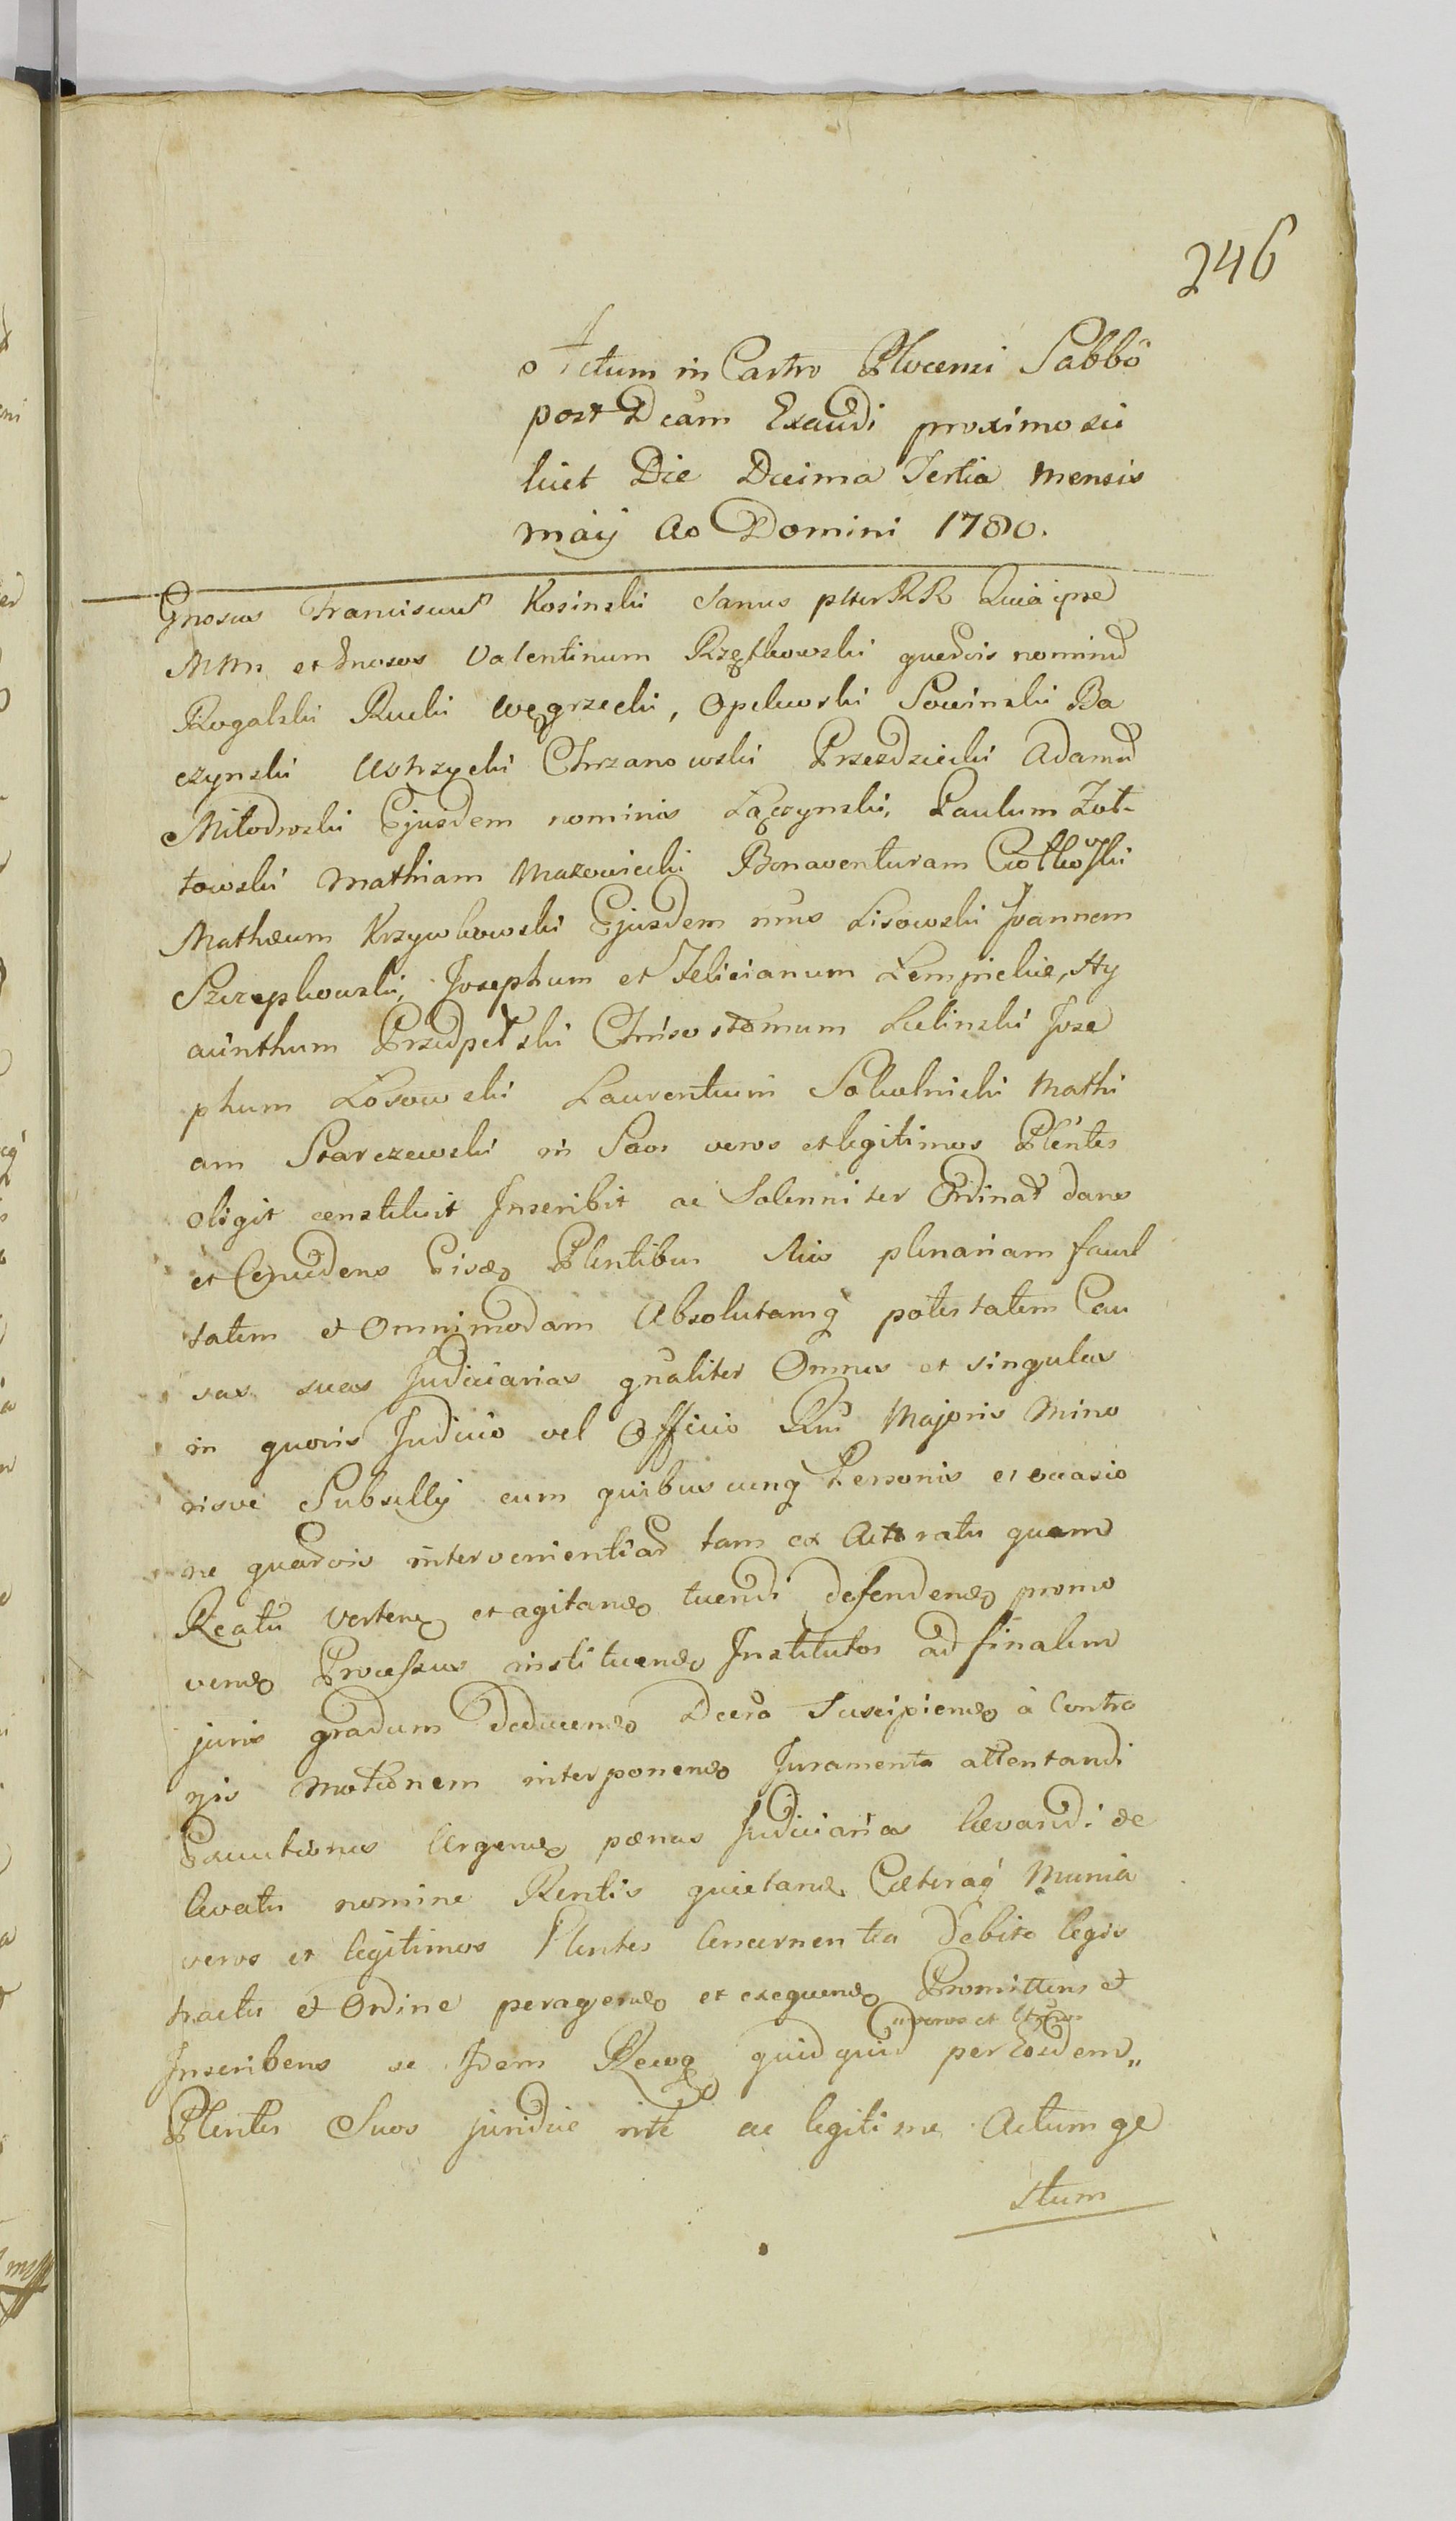 246
Actum in Castro Plocensi Sabbo
post Dcam Exaudi proximo sci
licet Die Decima Tertia mensis
maÿ Ao Domini 1780.
Gnosus Franciscus Kosinski Sanus pttur RR Quia ipse
MMn et Gnosos Valentinum Rzętkowski quedvis nomind
Rogalski Rucki Węgrzecki, Opelewski Sowinski Ba
czynski Ustrzycki Chrzanowski Przezdziecki Adamu
Miłodroski Ejusdem nominis Łączynski, Paulum Żół-
towski Mathiam Mazowiecki Bonaventuram Ciołkowski
Mathæum Krzywkowski Ejusdem nnis Lisowski Joannem
Szczepkowski, Josephum et Felicianum Lempickie, Hy
acinthum Przedpełski Chrisostomum Lelinski Jose
phum Łosowski Laurentium Sokolnicki Mathi
am Starczewski in Suos veros et legitimos Plentes
eligit constituit Inscribit ac Solenniter Ordinat dans
et Concedens Eisd Plentibus Suis plenariam facul
tatem et Omnimodam Absolutamq potestatem Cau
sas suas Judiciarias gnaliter Omnes et singulas
in quovis Judicio vel Officio Rni Majoris Mino
risve Subsellÿ cum quibuscunq Personis et occasio
ne quadvis intervenientiad tam ex Actoratu quam
Reatu verten et agitand tuendi defendend promo
vend Processus instituend Institutos ad finalem
juris gradum deducend Decra Suscipiend à Contra
ÿis Motionem interponend Juramenta attentandi
Executiones Urgend pænas Judiciarias levandi de
levatis nomine Rentis quietand Cæteraq Munia
veros et legitimos Plentes Concernentia debito legis
tractu et Ordine peragend et exequend Promittens et
Inscribens se Idem Recog quidquid per Eosdem„
„veros et
Plentes Suos juridice rite ac legitime Actum ge
stum